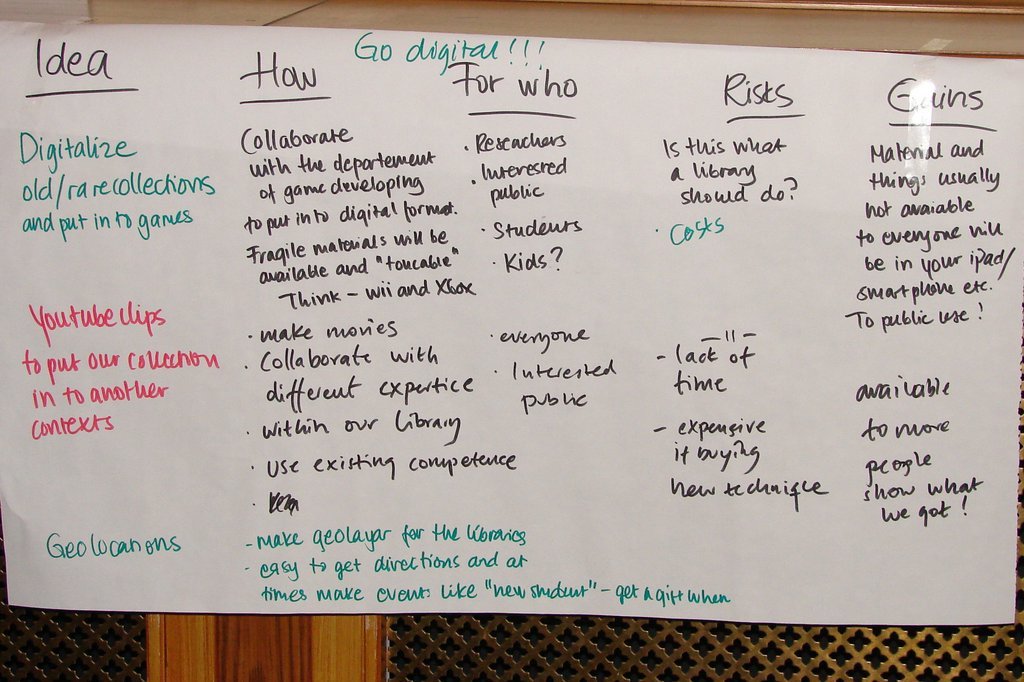 Go digital!!!
Idea
How
For who
Risks
Gains
Digitalize
old/rare collections
and put in to games
Collaborate
with the departement
of game developing
to put into digital format.
Fragile materials will be
available and "toucable"
Think - wii and Xbox
· Reseachers
· Interested
public
· Students
· Kids?
Is this what
a library
should do?
· Costs
Material and
things usually
not avaiable
to everyone will
be in your ipad/
smartphone etc.
To public use!
Youtube clips
to put our collection
in to another
contexts
· make movies
· Collaborate with
different expertice
· within our library
· Use existing competence
·
· everyone
· Interested
public
- " -
- lack of
time
- expensive
if buying
new technique
available
to more
people
show what
we got!
Geolocations
- make geolayar for the libraries
- easy to get directions and at
times make events like "new student" - get a gift when